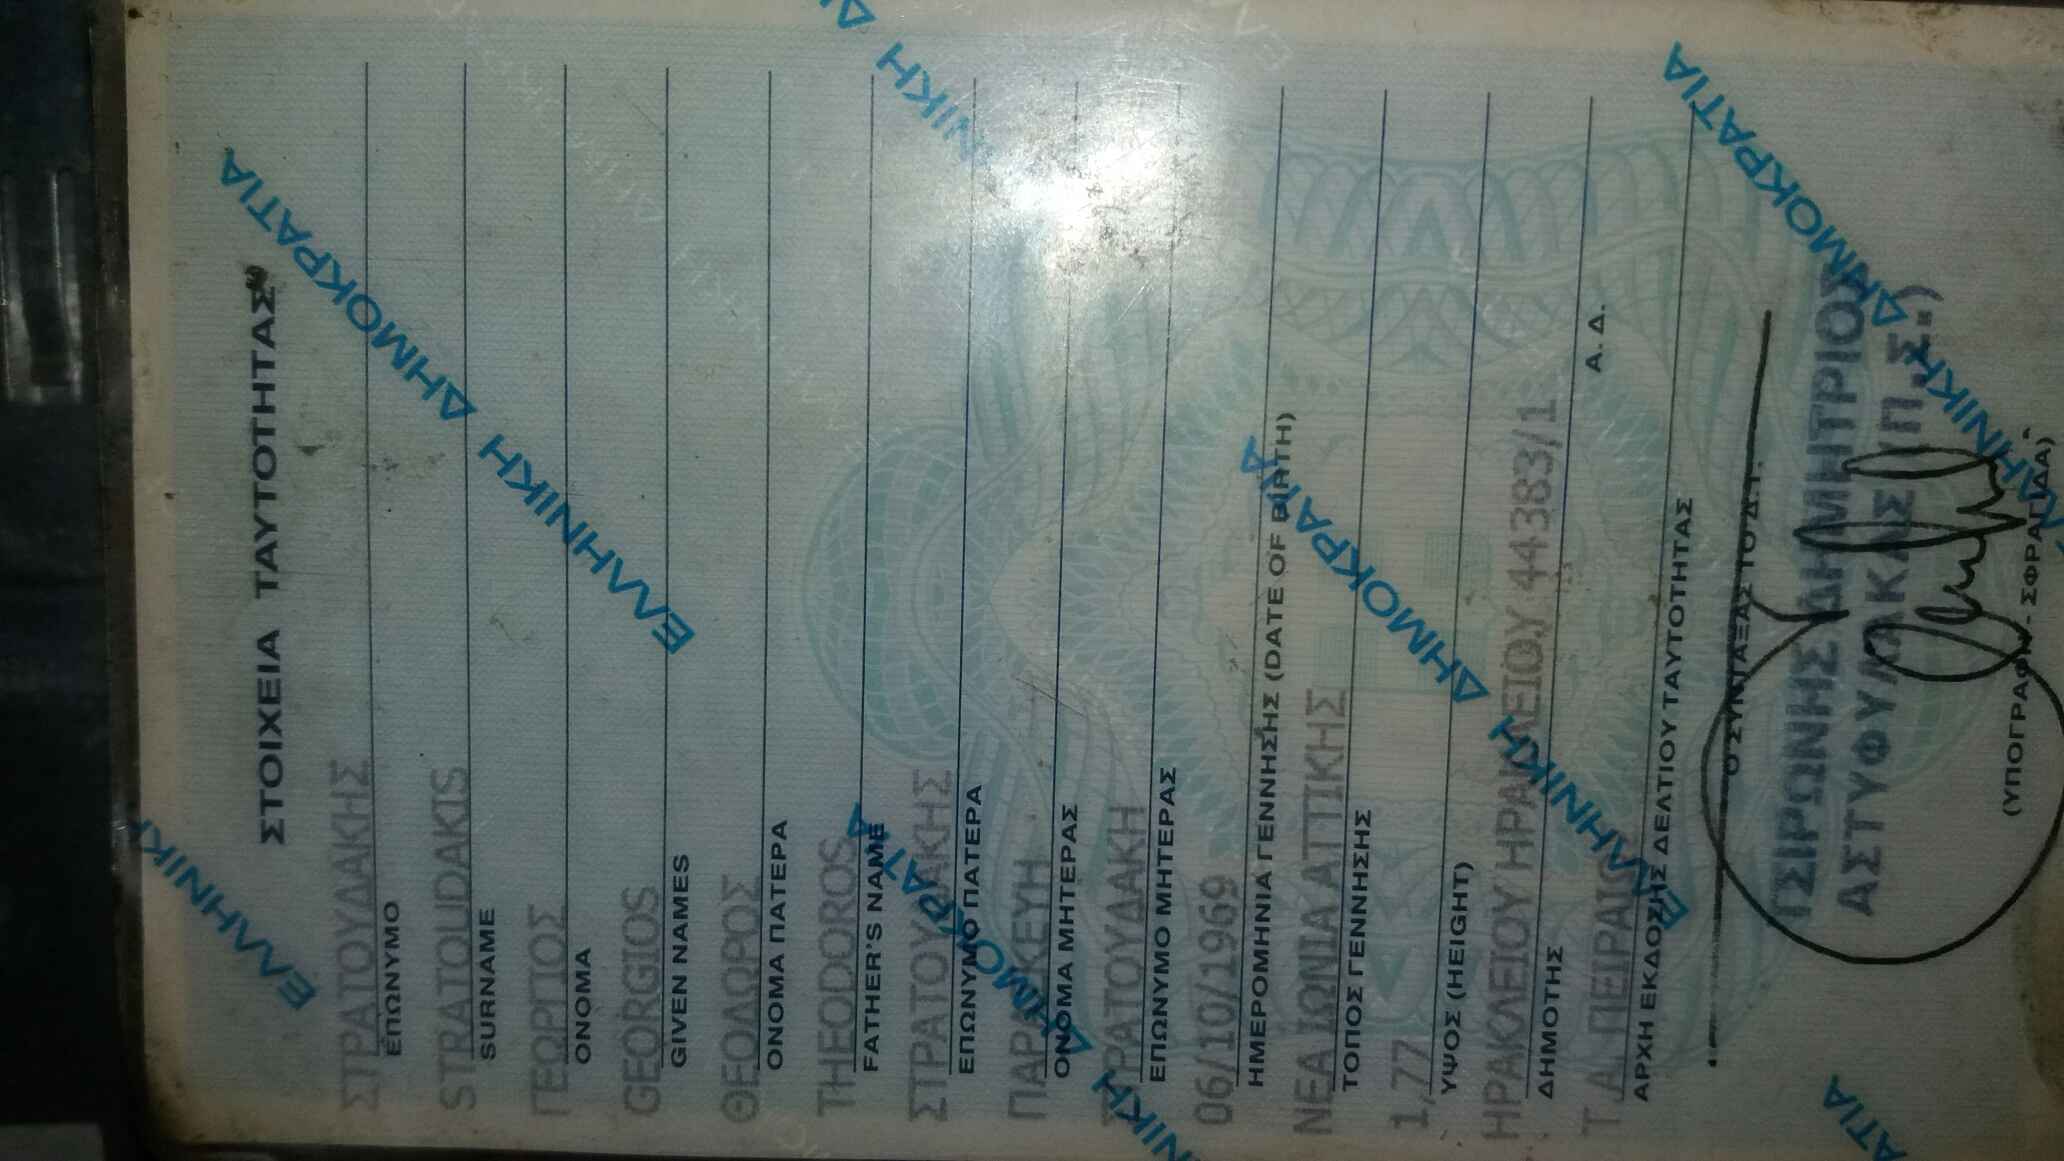 ΣΤΟΙΧΕΙΑ ΤΑΥΤΟΤΗΤΑΣ
ΣΤΡΑΤΟΥΔΑΚΗΣ
ΕΠΩΝΥΜΟ
STRATOUDAKIS
SURNAME
ΓΕΩΡΓΙΟΣ
ΟΝΟΜΑ
GEORGIOS
GIVEN NAMES
ΘΕΟΔΩΡΟΣ
ΟΝΟΜΑ ΠΑΤΕΡΑ
THEODOROS
FATHER'S NAME
ΣΤΡΑΤΟΥΔΑΚΗΣ
ΕΠΩΝΥΜΟ ΠΑΤΕΡΑ
ΠΑΡΑΣΚΕΥΗ
ΟΝΟΜΑ ΜΗΤΕΡΑΣ
ΣΤΡΑΤΟΥΔΑΚΗ
ΕΠΩΝΥΜΟ ΜΗΤΕΡΑΣ
06/10/1969
ΗΜΕΡΟΜΗΝΙΑ ΓΕΝΝΗΣΗΣ (DATE OF BIRTH)
ΝΕΑ ΙΩΝΙΑ ΑΤΤΙΚΗΣ
ΤΟΠΟΣ ΓΕΝΝΗΣΗΣ
1,77
ΥΨΟΣ (HEIGHT)
ΗΡΑΚΛΕΙΟΥ ΗΡΑΚΛΕΙΟΥ 44383/1
ΔΗΜΟΤΗΣ Α.Δ.
Τ.Α. ΠΕΙΡΑΙΩΣ
ΑΡΧΗ ΕΚΔΟΣΗΣ ΔΕΛΤΙΟΥ ΤΑΥΤΟΤΗΤΑΣ
Ο ΣΥΝΤΑΞΑΣ ΤΟ Δ.Τ.
ΤΣΙΡΩΝΗΣ ΔΗΜΗΤΡΙΟΣ
ΑΣΤΥΦΥΛΑΚΑΣ (Π.Σ.)
(ΥΠΟΓΡΑΦΗ - ΣΦΡΑΓΙΔΑ)
ΕΛΛΗΝΙΚΗ ΔΗΜΟΚΡΑΤΙΑ
ΕΛΛΗΝΙΚΗ ΔΗΜΟΚΡΑΤΙΑ
ΕΛΛΗΝΙΚΗ ΔΗΜΟΚΡΑΤΙΑ